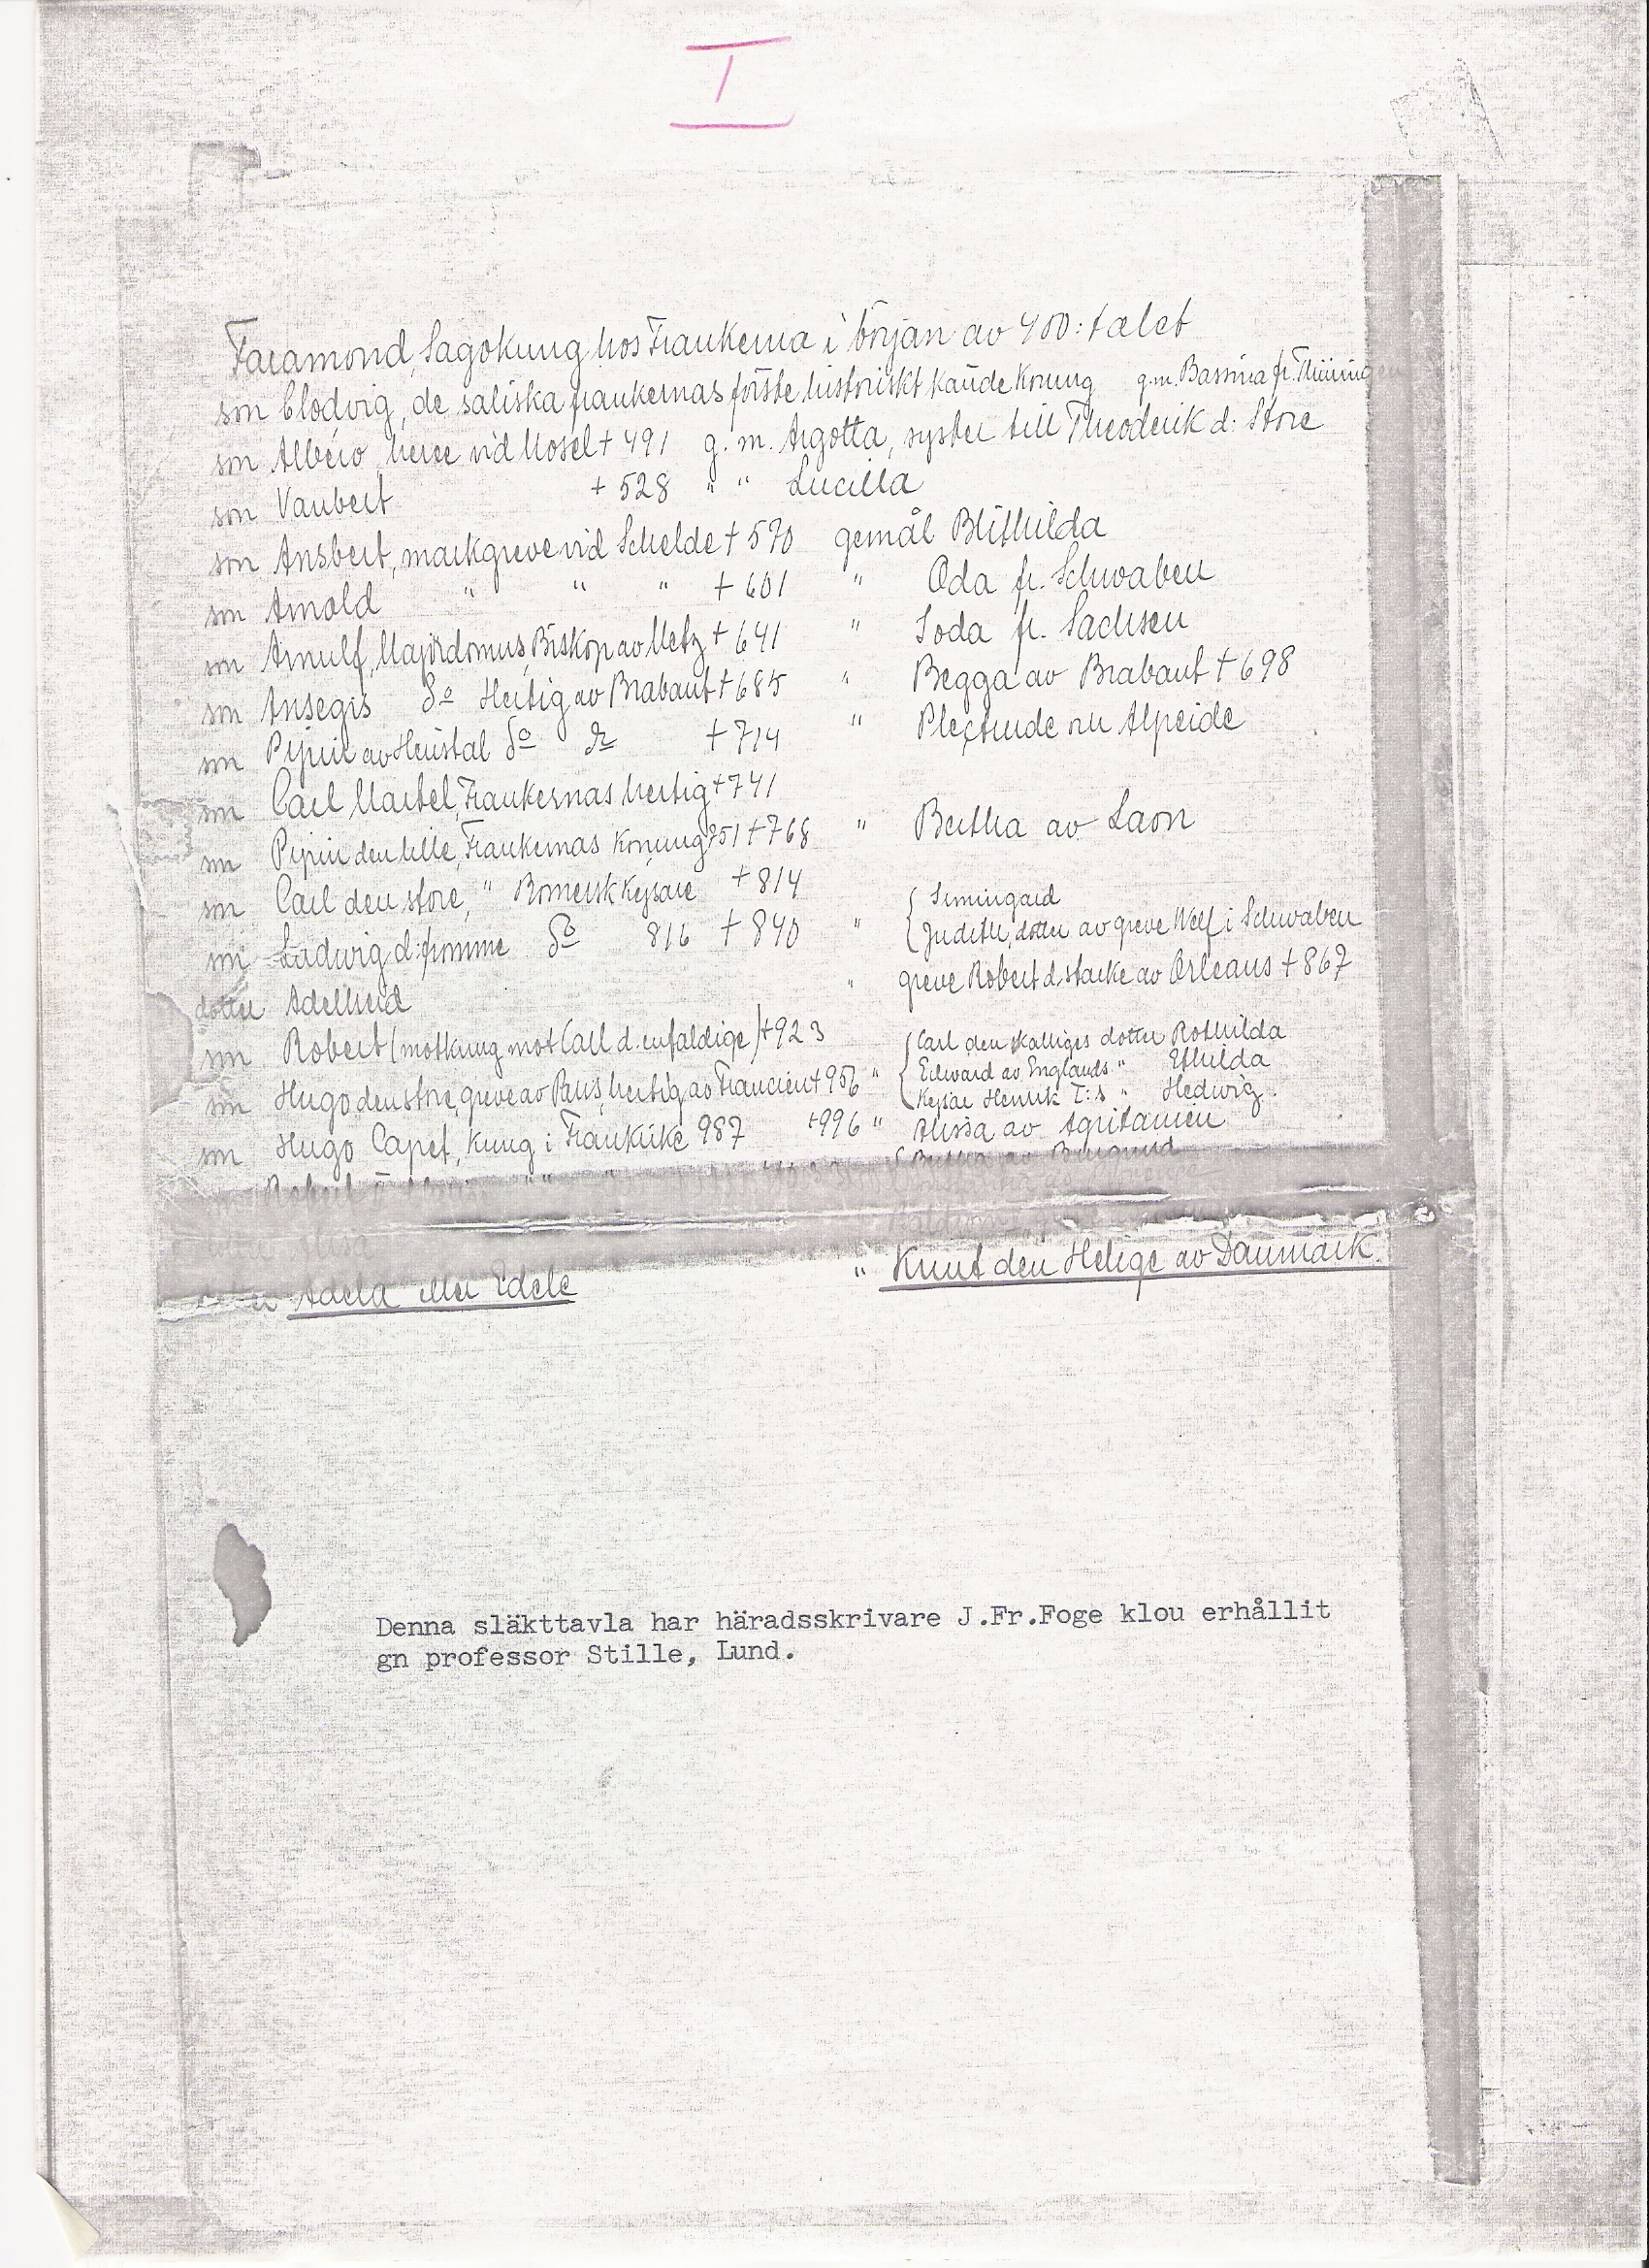 I
Faramond, Sagokung hos Frankerna i början av 400:talet
son Clodvig, de saliska frankernas förste historiskt kände konung g.m. Bassina fr. Thüringen
son Albero, herre vid Mosel + 491 g. m. Argotta, syster till Theoderik d. Store
son Vaubert + 528 " " Lucilla
son Ansbert, markgreve vid Schelde + 570 gemål Blithilda
son Arnold " " " + 601 " Oda fr. Schwaben
son Arnulf, Majordomus, Biskop av Metz + 641 " Doda fr. Sachsen
son Ansegis do Hertig av Brabant + 685 " Begga av Brabant + 698
son Pipin av Heristal do do + 714 " Plectrude nu Alpeide
son Carl Martel, Frankernas hertig + 741
son Pipin den lille, Frankernas konung 751 + 768 " Bertha av Laon
son Carl den store, " Romersk Kejsare + 814
son Ludwig d: fromme do 816 + 840 " { Irmingard
Judith, dotter av greve Welf i Schwaben
dotter Adelheid " greve Robert d. starke av Orleans + 867
son Robert (motkung mot Carl d. enfaldige) + 923
son Hugo den store, greve av Paris, hertig av Francien + 956 " { Carl den skalliges dotter Rothilda
Edward av Englands " Ethilda
Kejsar Henrik I:s " Hedwig.
son Hugo Capet, kung i Frankrike 987 +996 " Alissa av Aquitanien
Robert " " { Bertha av Burgund
Adela eller Edele " Knut den Helige av Danmark.
Denna släkttavla har häradsskrivare J.Fr.Foge klou erhållit
gn professor Stille, Lund.